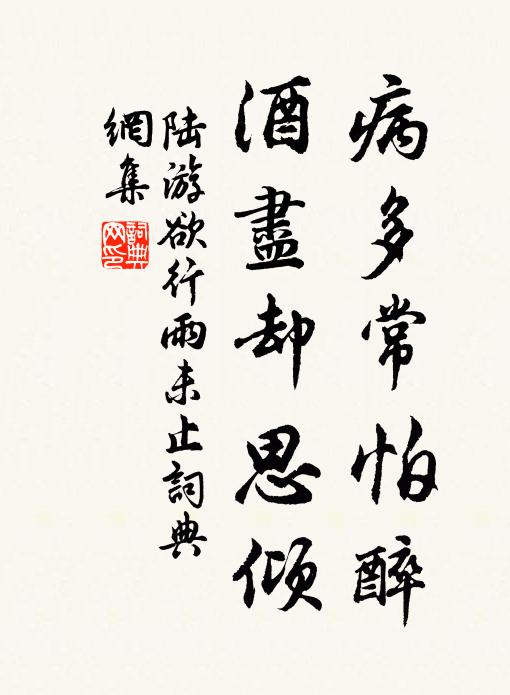 病多常怕醉
酒盡却思傾
陆游欲行雨未止詞典
網集
詞典
网印